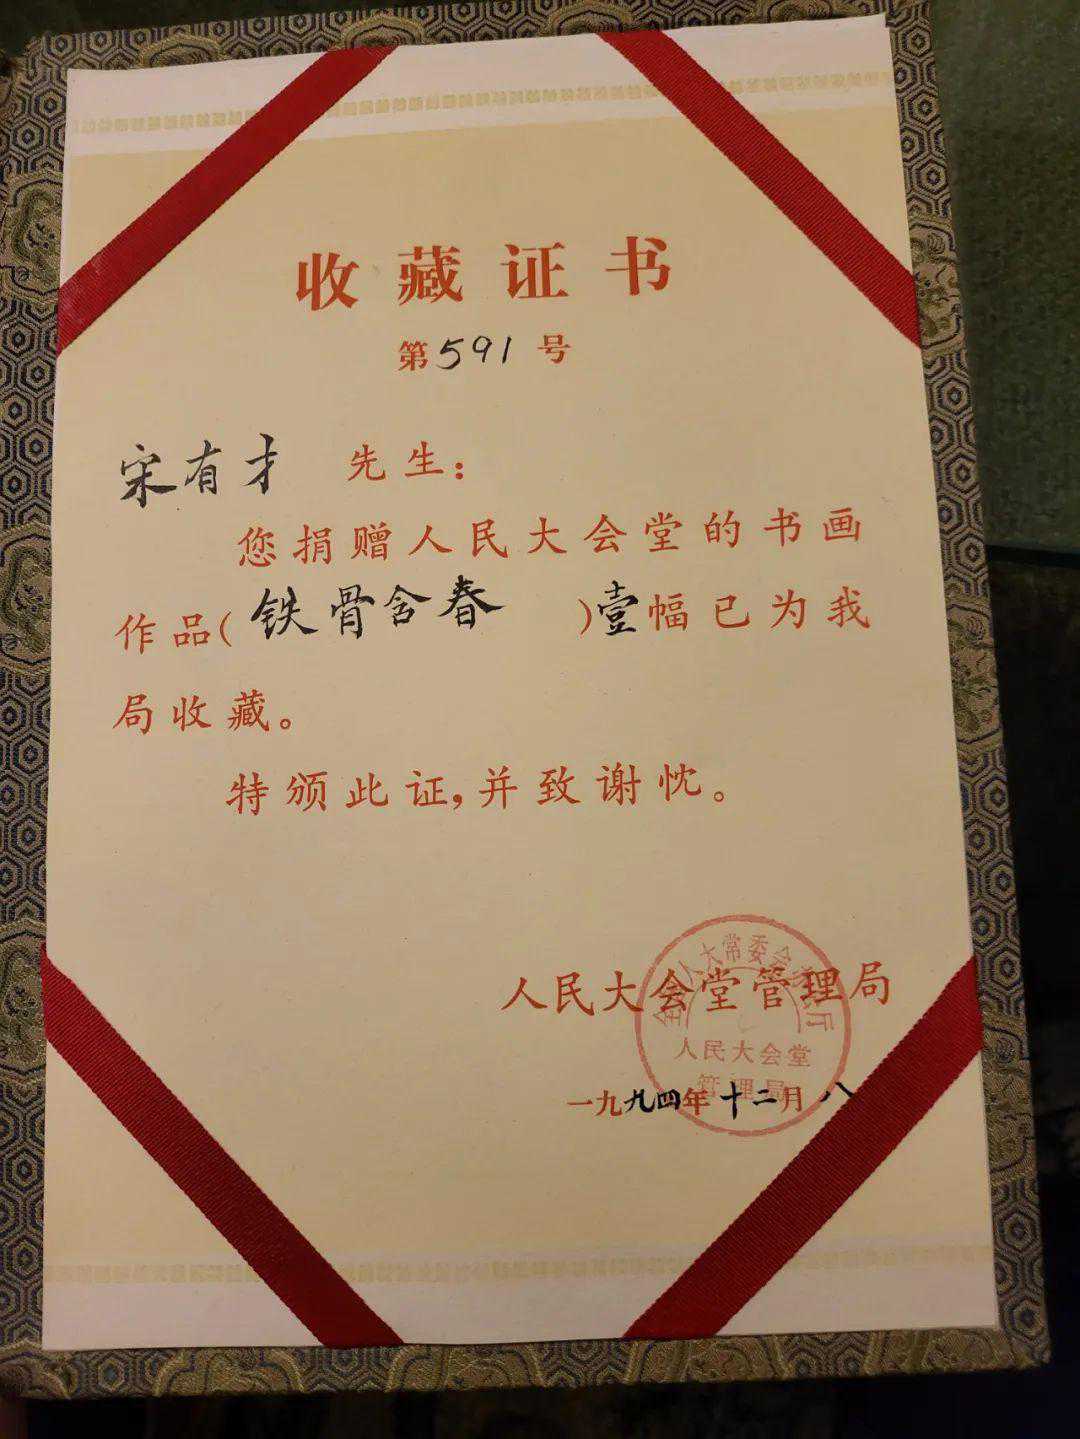 收藏证书
第591号
宋有才 先生：
您捐赠人民大会堂的书画
作品(铁骨含春)壹幅已为我
局收藏。
特颁此证,并致谢忱。
人民大会堂管理局
一九九四年十二月八
全国人大常委会办公厅
人民大会堂
管理局